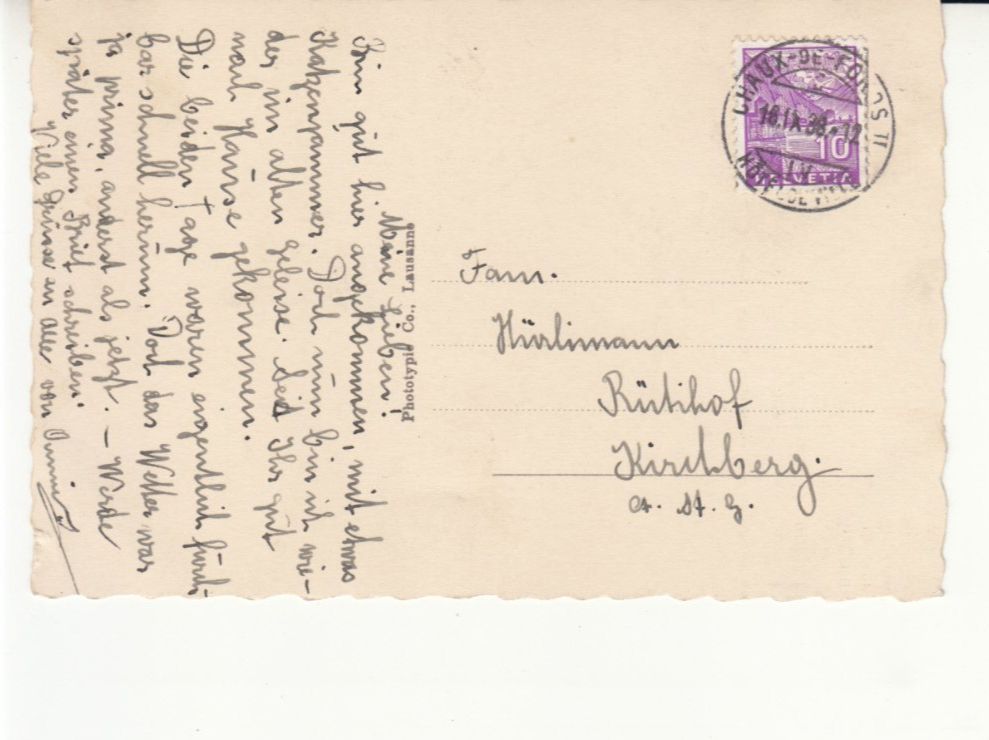 Meine Lieben!
Bin gut hier angekommen, mit etwas
Katzenjammer. Doch nun bin ich wie-
der im alten geleise. Seid Ihr gut
nach Hause gekommen.
Die beiden Tage waren eigentlich furcht-
bar schnell herum. Doch das Wetter war
ja prima, anderst als jetzt. – Werde
später einen Brief schreiben.
Viele Grüsse an alle von
Phototypie Co., Lausanne
CHAUX-DE-FONDS II
16.IX.36.-12
HÔTEL DE VILLE
10
HELVETIA
Fam.
Hürlimann
Rütihof
Kirchberg.
St. G.